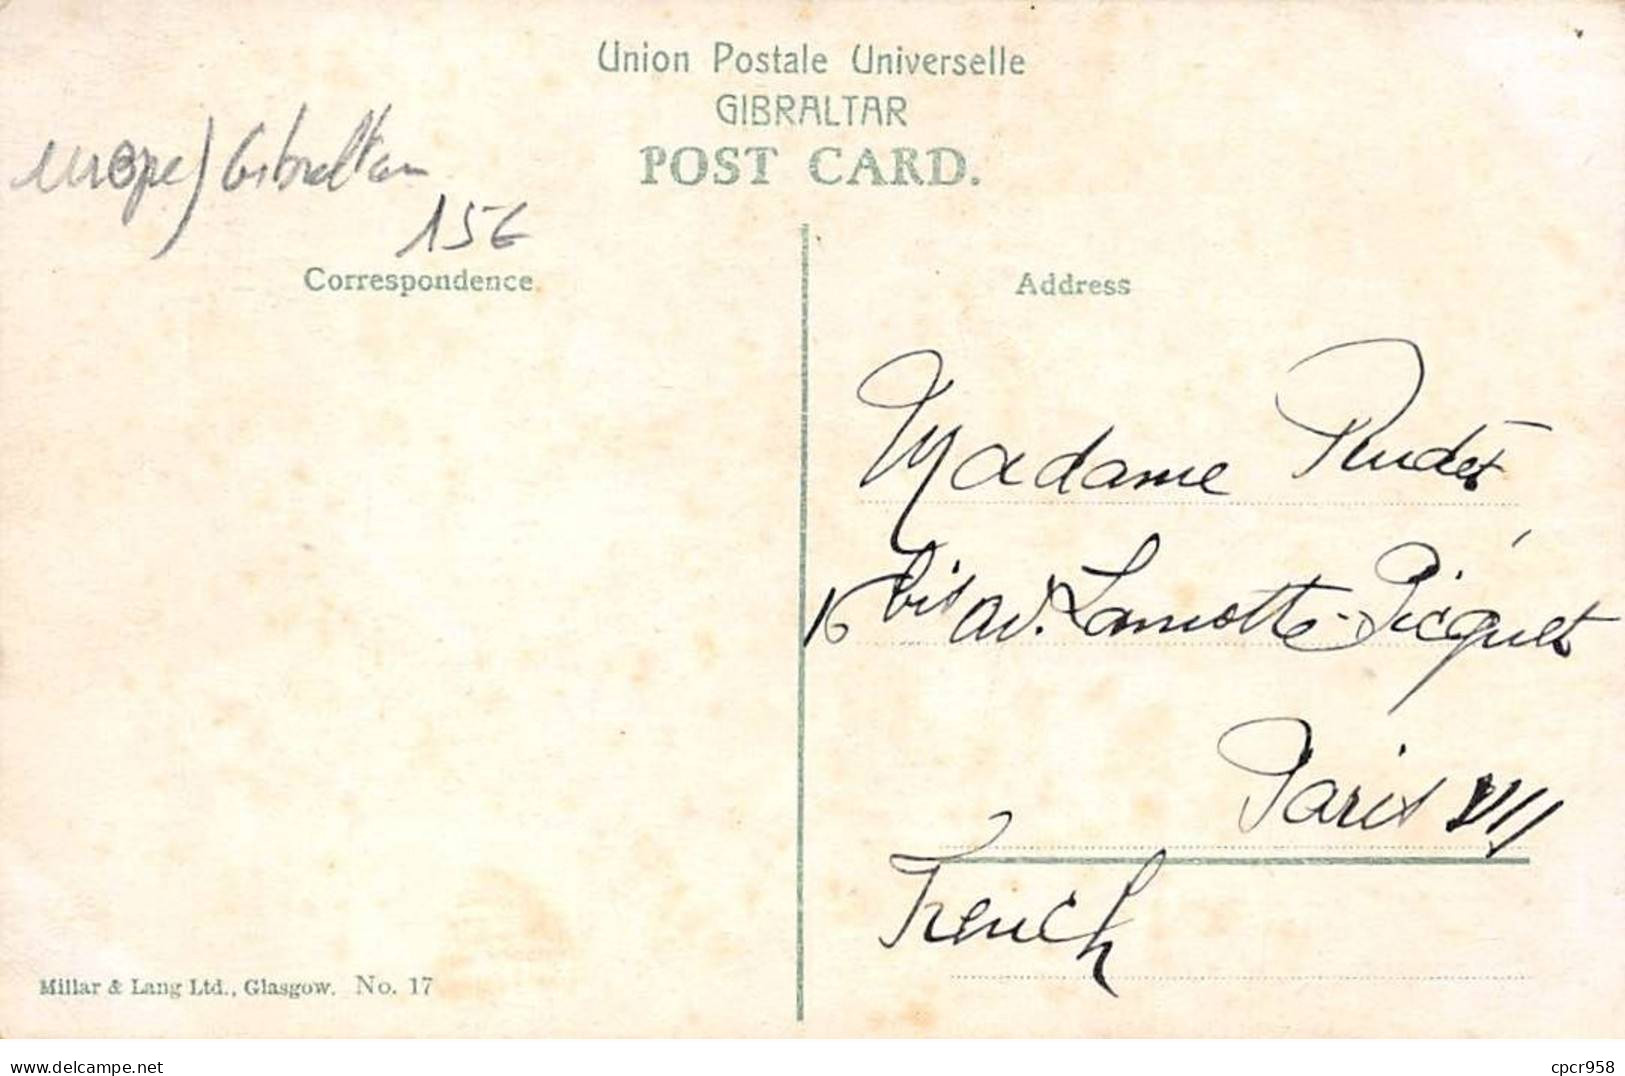 Union Postale Universelle
GIBRALTAR
POST CARD.
europe) Gibraltar
15€
Correspondence
Address
Madame
16 bis av. Lamotte-Picquet
Paris VII
French
Millar & Lang Ltd., Glasgow. No. 17
www.delcampe.net
cpcr958